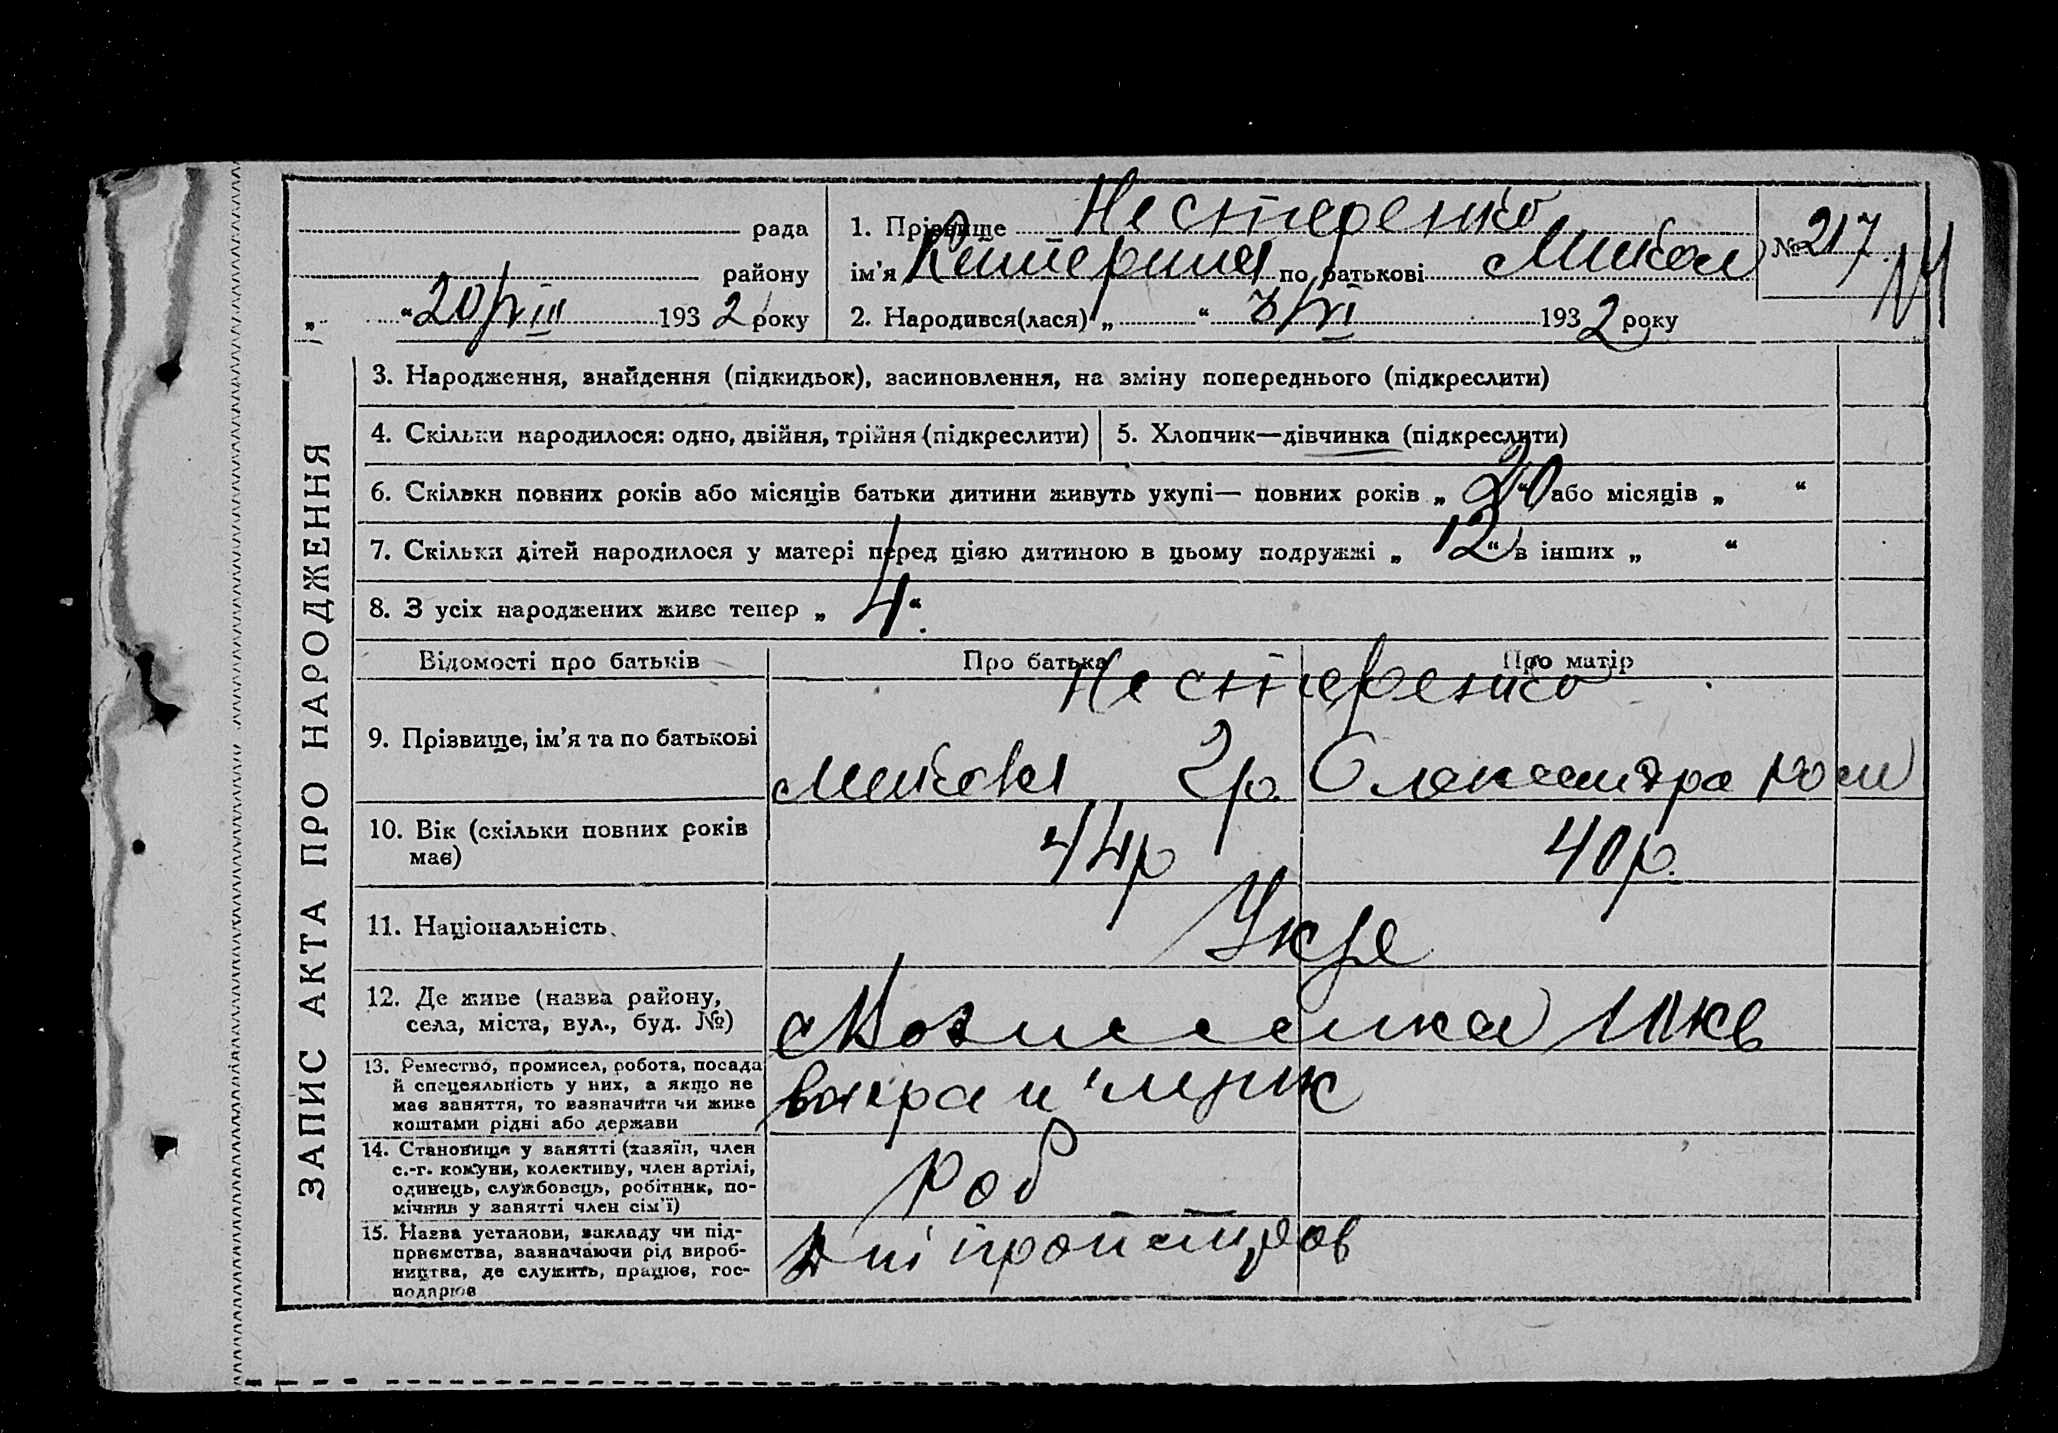 ЗАПИС АКТА ПРО НАРОДЖЕННЯ
рада
району
„ “ 20/VIII 1932 року
1. Прізвище Нестеренко
ім'я Катерина по батькові Микол
№ 217
2. Народився(лася) „ “ 3/VI 1932 року
3. Народження, знайдення (підкидьок), засиновлення, на зміну попереднього (підкреслити)
4. Скільки народилося: одно, двійня, трійня (підкреслити)
5. Хлопчик—дівчинка (підкреслити)
6. Скільки повних років або місяців батьки дитини живуть укупі— повних років „ 20 “ або місяців „ “
7. Скільки дітей народилося у матері перед цією дитиною в цьому подружжі „ 12 “ в інших „ “
8. З усіх народжених живе тепер „ 4 “.
Відомості про батьків
Про батька
Про матір
9. Прізвище, ім'я та по батькові
Нестеренко
Микола Гр. Олександра Ром
10. Вік (скільки повних років має)
44р
40р.
11. Національність
Укр
12. Де живе (назва району,
села, міста, вул., буд. №)
13. Ремество, промисел, робота, посада
й спецеяльність у них, а якщо не
має заняття, то зазначити чи живе
коштами рідні або держави
14. Становище у занятті (хазяїн, член
с.-г. комуни, колективу, член артілі,
одинець, службовець, робітник, по-
мічник у занятті член сім'ї)
Роб
15. Назва установи, закладу чи під-
приємства, зазначаючи рід вироб-
ництва, де служить, працює, гос-
подарює